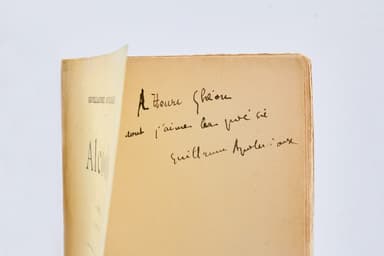 GUILLAUME
Alco
A Henri Ghéon
dont j'aime la poésie
Guillaume Apollinaire